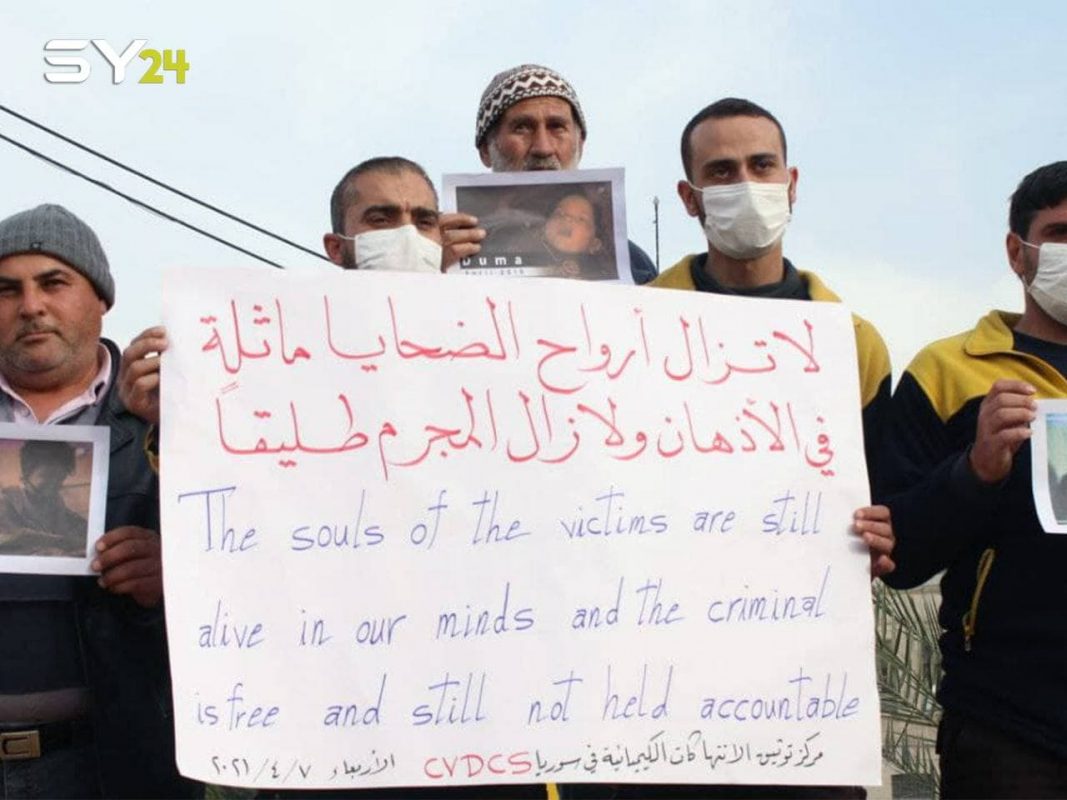 SY24
Duma
لا تزال أرواح الضحايا ماثلة
في الأذهان ولا زال المجرم طليقاً
The souls of the victims are still
alive in our minds and the criminal
is free and still not held accountable
مركز توثيق الانتهاكات الكيميائية في سوريا CVDCS الأربعاء ٢٠٢١/٤/٧